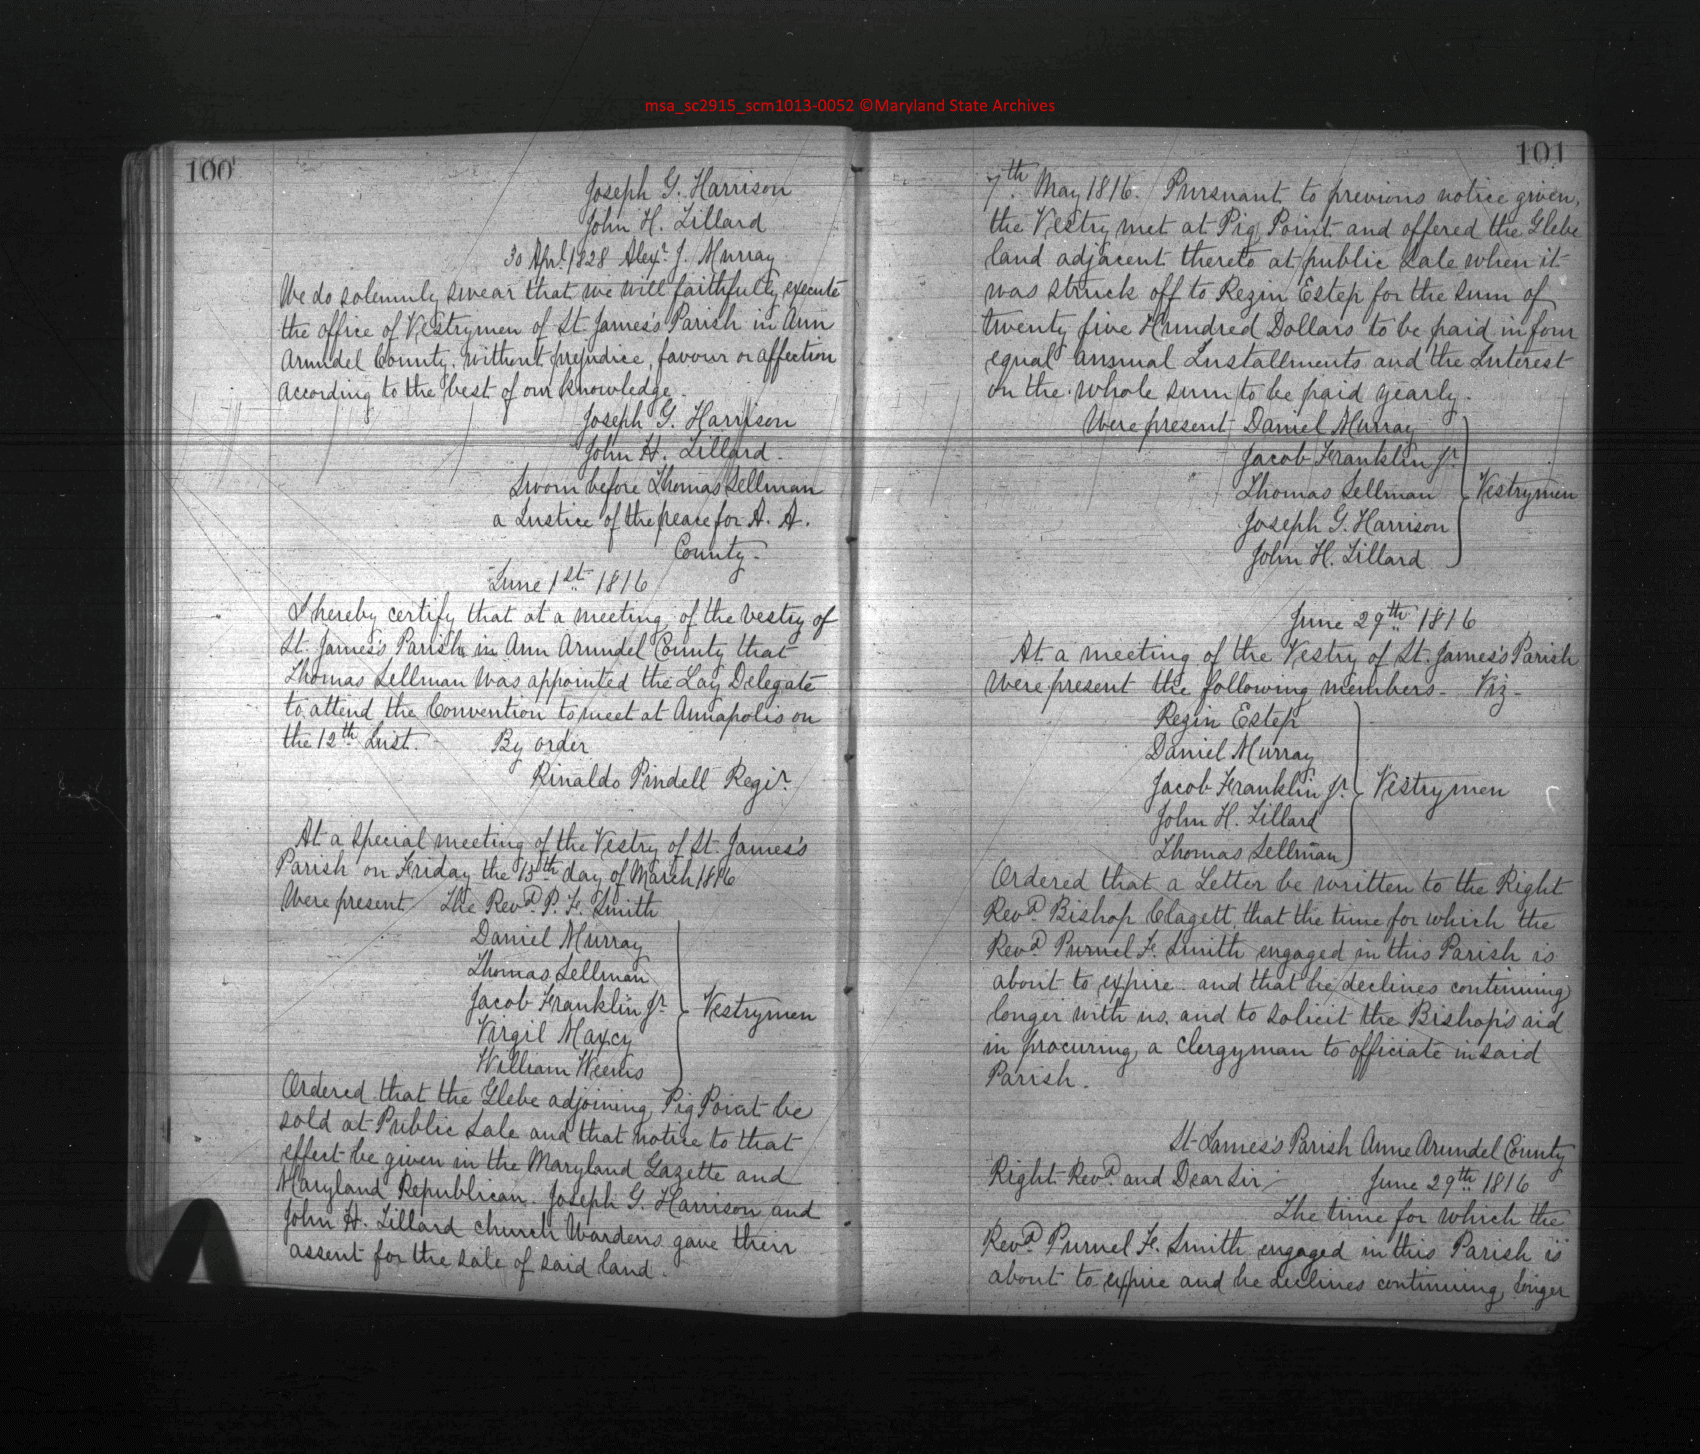 msa_sc2915_scm1013-0052 ©Maryland State Archives
100
Joseph G. Harrison
John H. Lillard
30 Apr. 1828 Alexr. J. Murray
We do solemnly swear that we will faithfully execute
the office of Vestrymen of St. James's Parish in Ann
Arundel County, without prejudice, favour or affection
according to the best of our knowledge.
Joseph G. Harrison
John H. Lillard.
Sworn before Thomas Sellman
a Justice of the peace for A. A.
County.
June 1st. 1816
I hereby certify that at a meeting of the vestry of
St. James's Parish in Ann Arundel County that
Thomas Sellman was appointed the Lay Delegate
to attend the Convention to meet at Annapolis on
the 12th Inst. By order
Rinaldo Pindell Regir.
At a special meeting of the Vestry of St. James's
Parish on Friday the 15th day of March 1816
Were present The Revd. P. F. Smith
Daniel Murray
Thomas Sellman
Jacob Franklin Jr.
Vestrymen
Virgil Maxcy
William Weems
Ordered that the Glebe adjoining Pig Point be
sold at Public Sale and that notice to that
effect be given in the Maryland Gazette and
Maryland Republican. Joseph G. Harrison and
John H. Lillard church Wardens gave their
assent for the sale of said land.
101
7th. May 1816. Pursuant to previous notice given,
the Vestry met at Pig Point and offered the Glebe
land adjacent thereto at public Sale when it
was struck off to Rezin Estep for the sum of
twenty five Hundred Dollars to be paid in four
equal annual Installments and the Interest
on the whole sum to be paid yearly.
Were present Daniel Murray
Jacob Franklin Jr.
Thomas Sellman Vestrymen
Joseph G. Harrison
John H. Lillard
June 29th. 1816
At a meeting of the Vestry of St. James's Parish
Were present the following members - Viz -
Rezin Estep
Daniel Murray
Jacob Franklin Jr. Vestrymen
John H. Lillard
Thomas Sellman
Ordered that a Letter be written to the Right
Revd. Bishop Clagett, that the time for which the
Revd. Purnel F. Smith engaged in this Parish is
about to expire and that he declines continuing
longer with us, and to solicit the Bishop's aid
in procuring a clergyman to officiate in said
Parish.
St James's Parish Anne Arundel County
Right Revd. and Dear Sir June 29th. 1816
The time for which the
Revd. Purnel F. Smith engaged in this Parish is
about to expire and he declines continuing longer